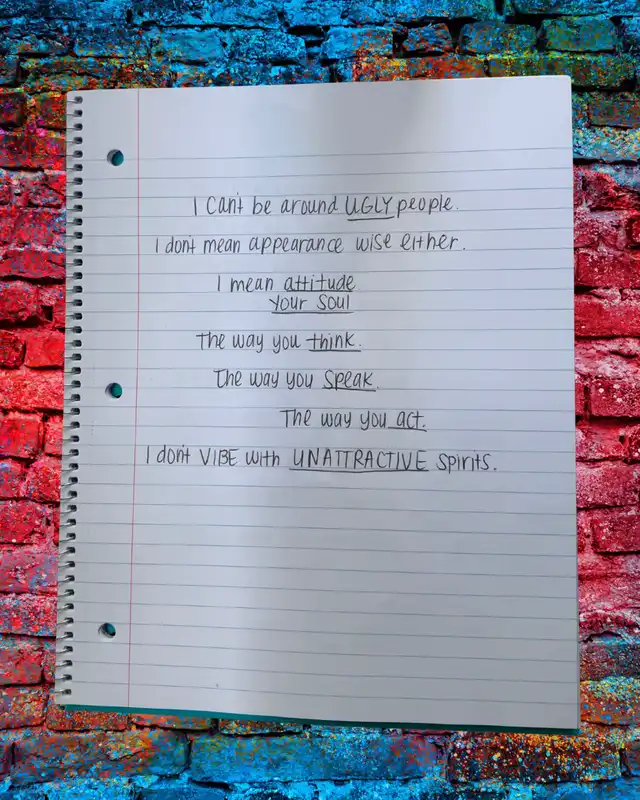 I can't be around UGLY people.
I don't mean appearance wise either.
I mean attitude
Your Soul
The way you think.
The way you speak.
The way you act.
I don't VIBE with UNATTRACTIVE spirits.